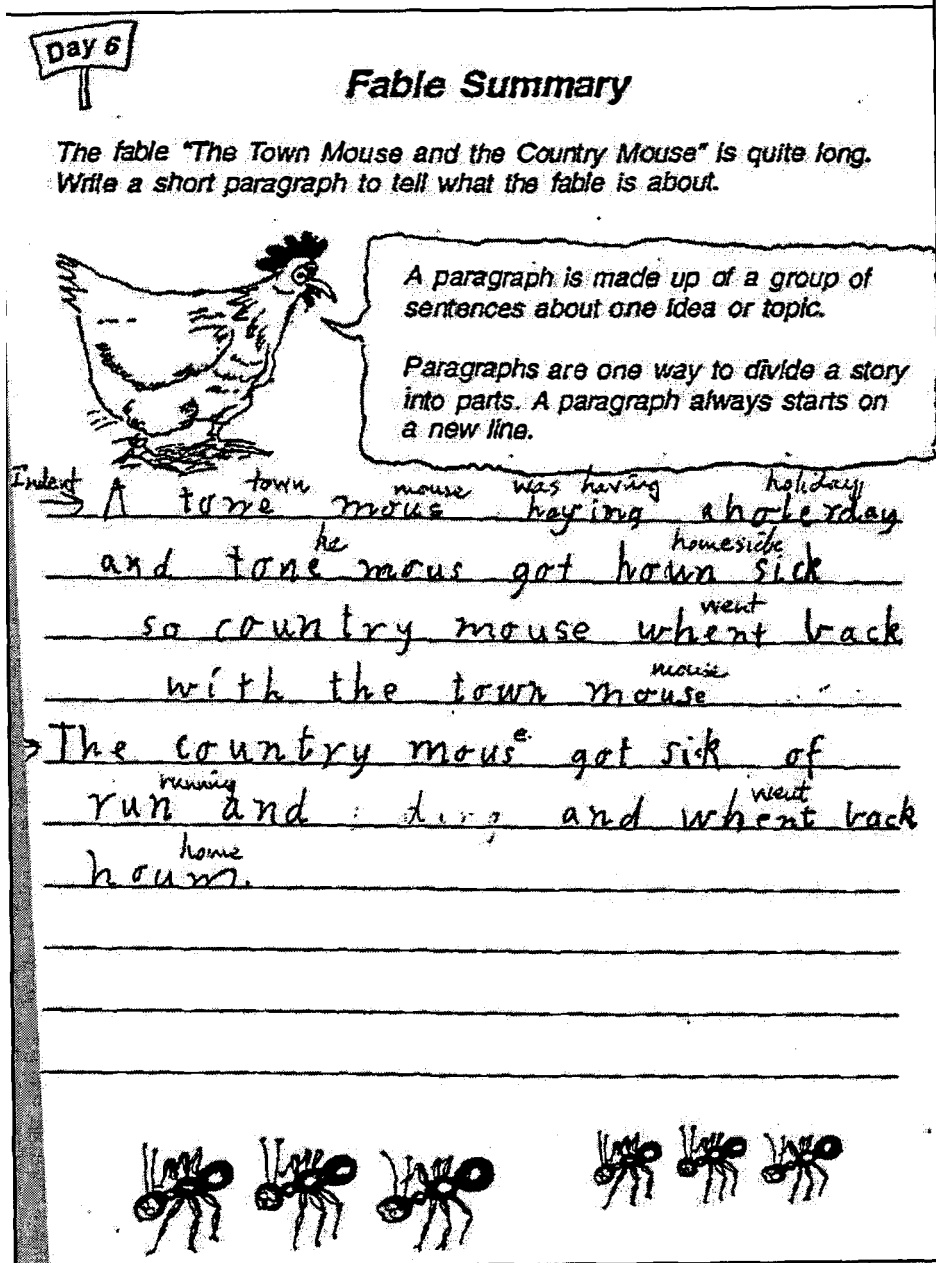 Day 6
Fable Summary
The fable "The Town Mouse and the Country Mouse" is quite long.
Write a short paragraph to tell what the fable is about.
A paragraph is made up of a group of
sentences about one idea or topic.
Paragraphs are one way to divide a story
into parts. A paragraph always starts on
a new line.
Indent town mouse was having holiday
A tone mous haying aholerday
he homesick
and tone mous got houn sick
went
so country mouse whent back
mouse
with the town mouse
The country mouse got sick of
running went
run and and whent back
home
houm.